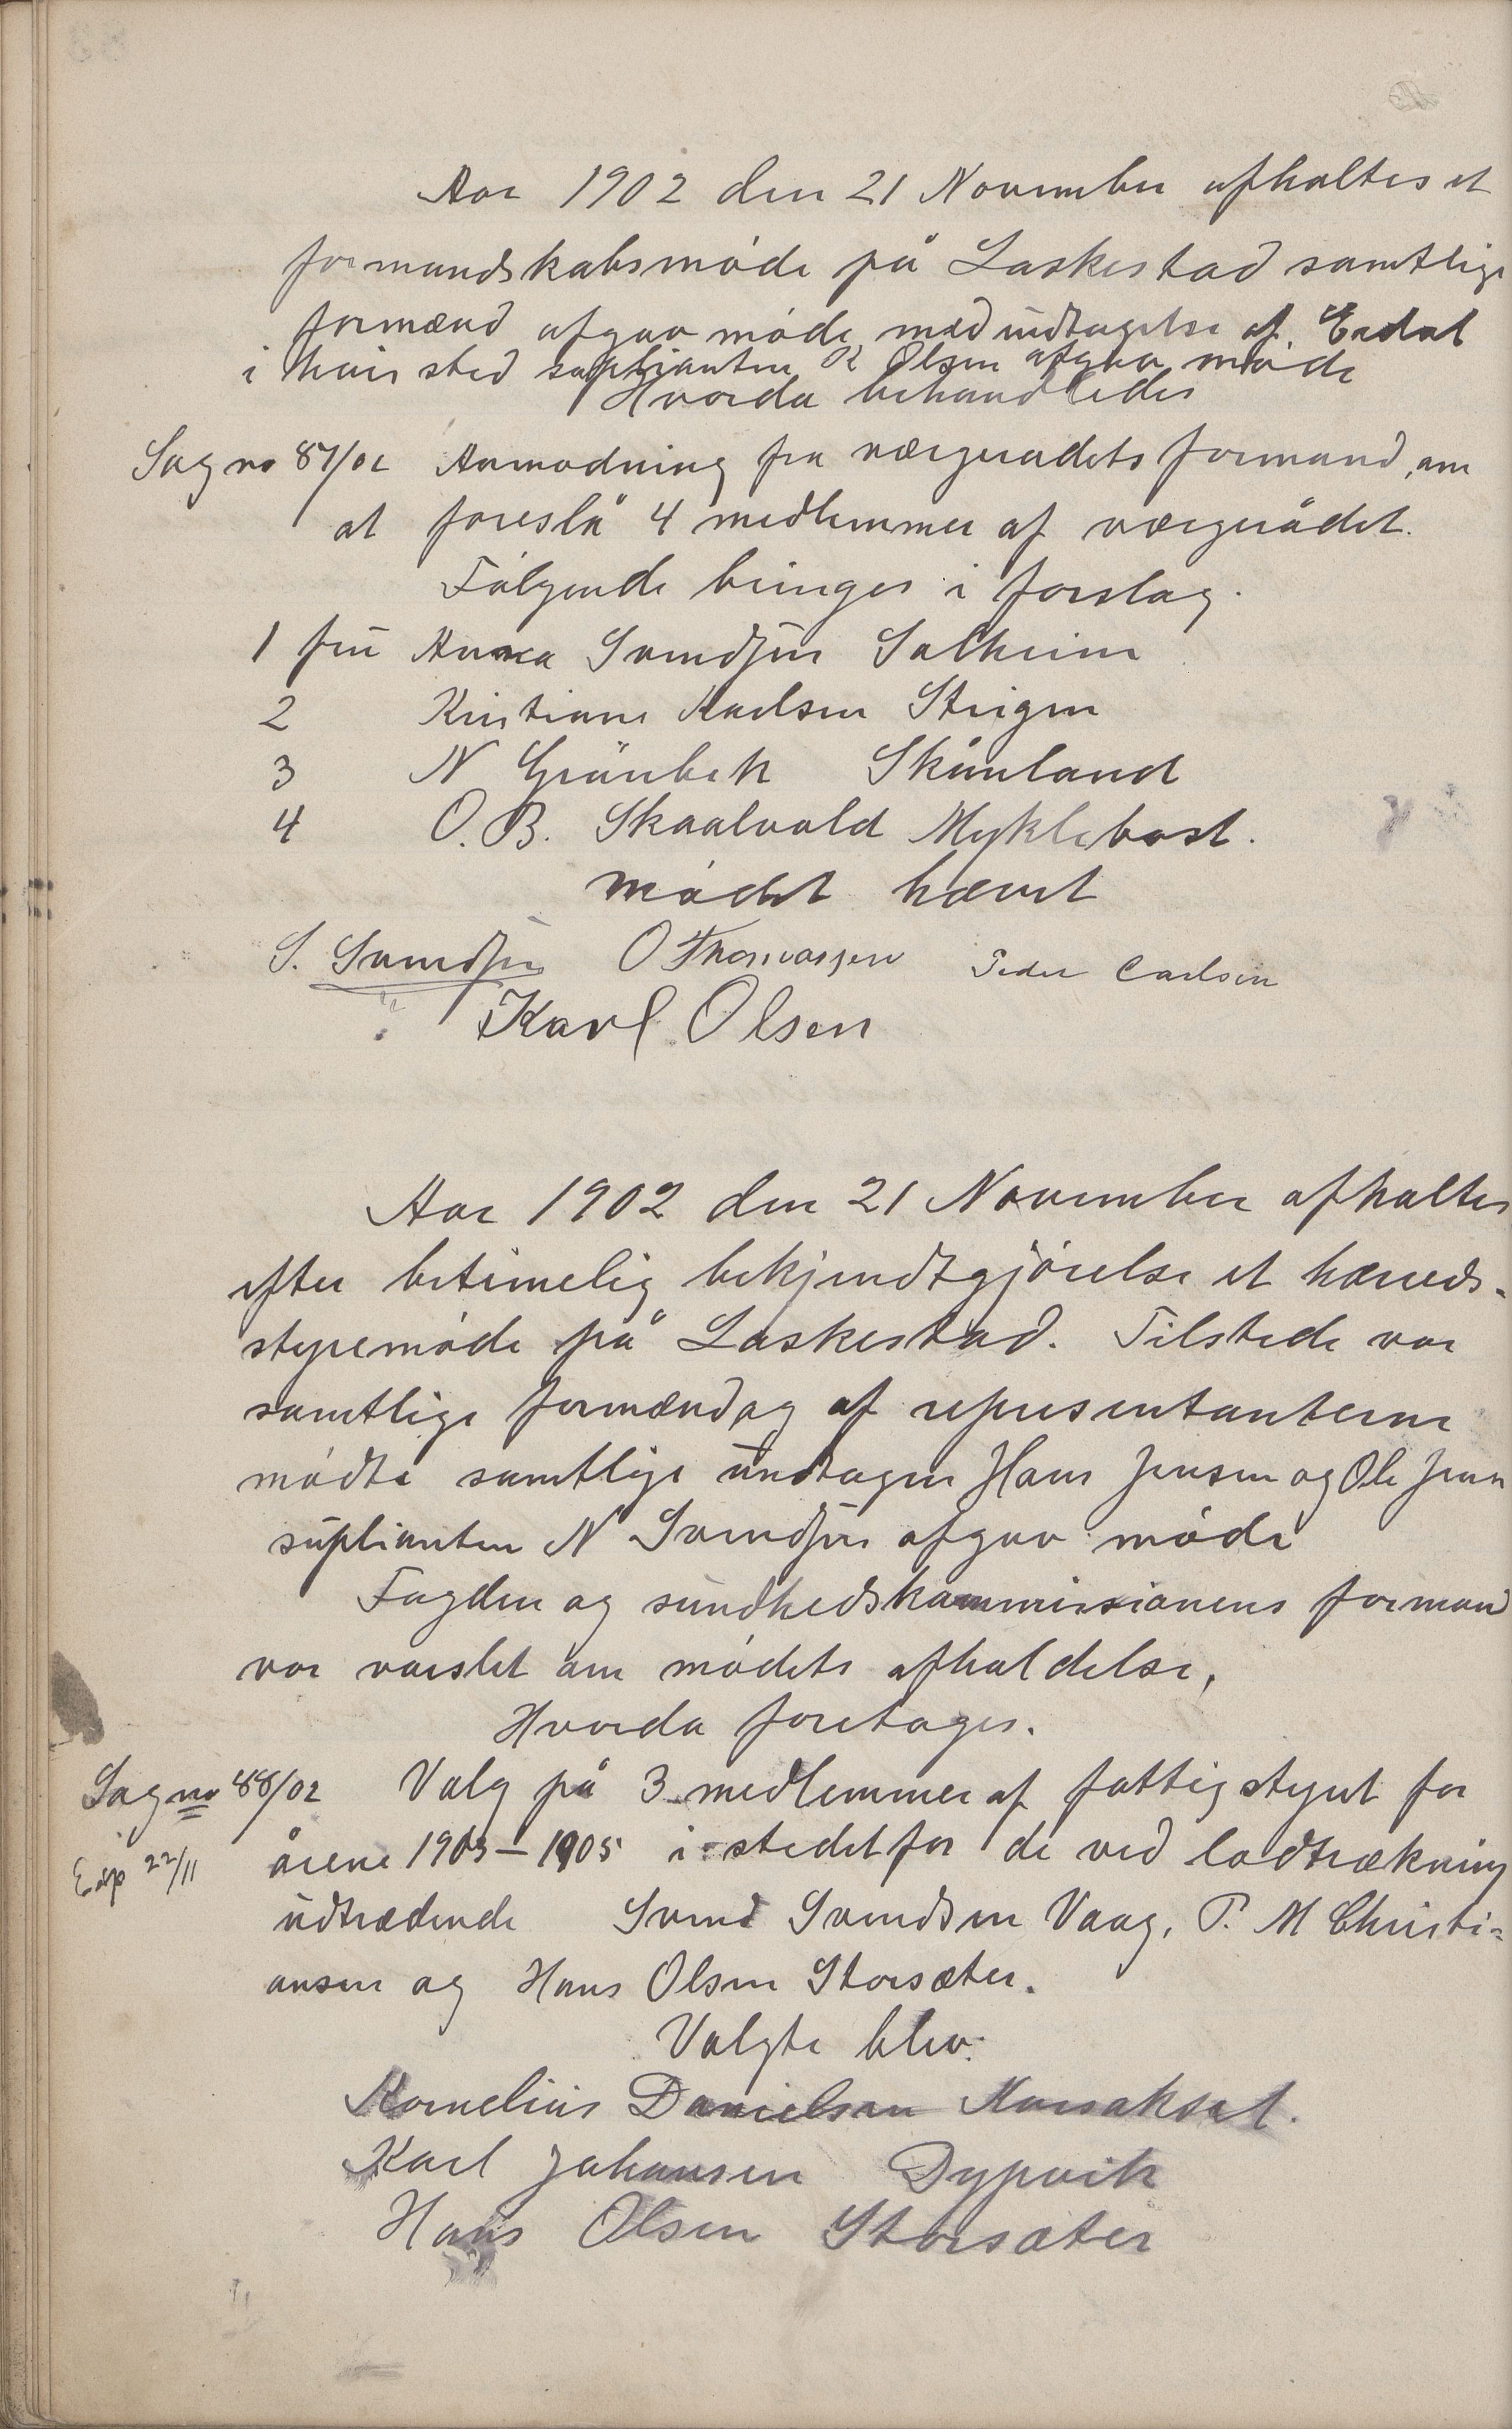 Aar 1902 den 21 November afholtes et
formandskabsmøde på Laskestad samtlige
formænd afgav møde med undtagelse af Erdal
i hvis sted suplianten K Olsen afgav møde
Hvorda behandledes
Sag no 87/02 Anmodning fra værgeradets formand, om
at foreslå 4 medlemmer af værgerådet.
Følgende bringes i forslag.
1 frú Anna Svendsen Solheim
2 Kristiane Karlsen Steigen
3 N Grönbek Skånland
4 O. B. Skaalvold Myklebost.
mødet hævet
S. Svendsen O Thorvassen Peder Carlsen
Karl Olsen
Aar 1902 den 21 November afholtes
efter betimelig bekjendtgjørelse et hærreds-
styremøde på Laskestad. Tilstede var
samtlige formænd og af representanterne
mødte samtlige undtagen Hans Jensen og Ole Jensen
suplianten N Svendsen afgav møde
Fogden og sundhedskommissionens formand
var varslet om mødets afholdelse,
Hvorda foretoges.
Sag no 88/02 Valg på 3 medlemmer af fattigstyret for
Exp 22/11 årene 1903-1905 i stedet for de ved lodtrækning
udtrædende Svend Svendsen Vaag, P. M Christi=
ansen og Hans Olsen Storsæter.
Valgte blev:
Kornelius Danielsen
Karl Johansen Dypvik
Hans Olsen Storsæter